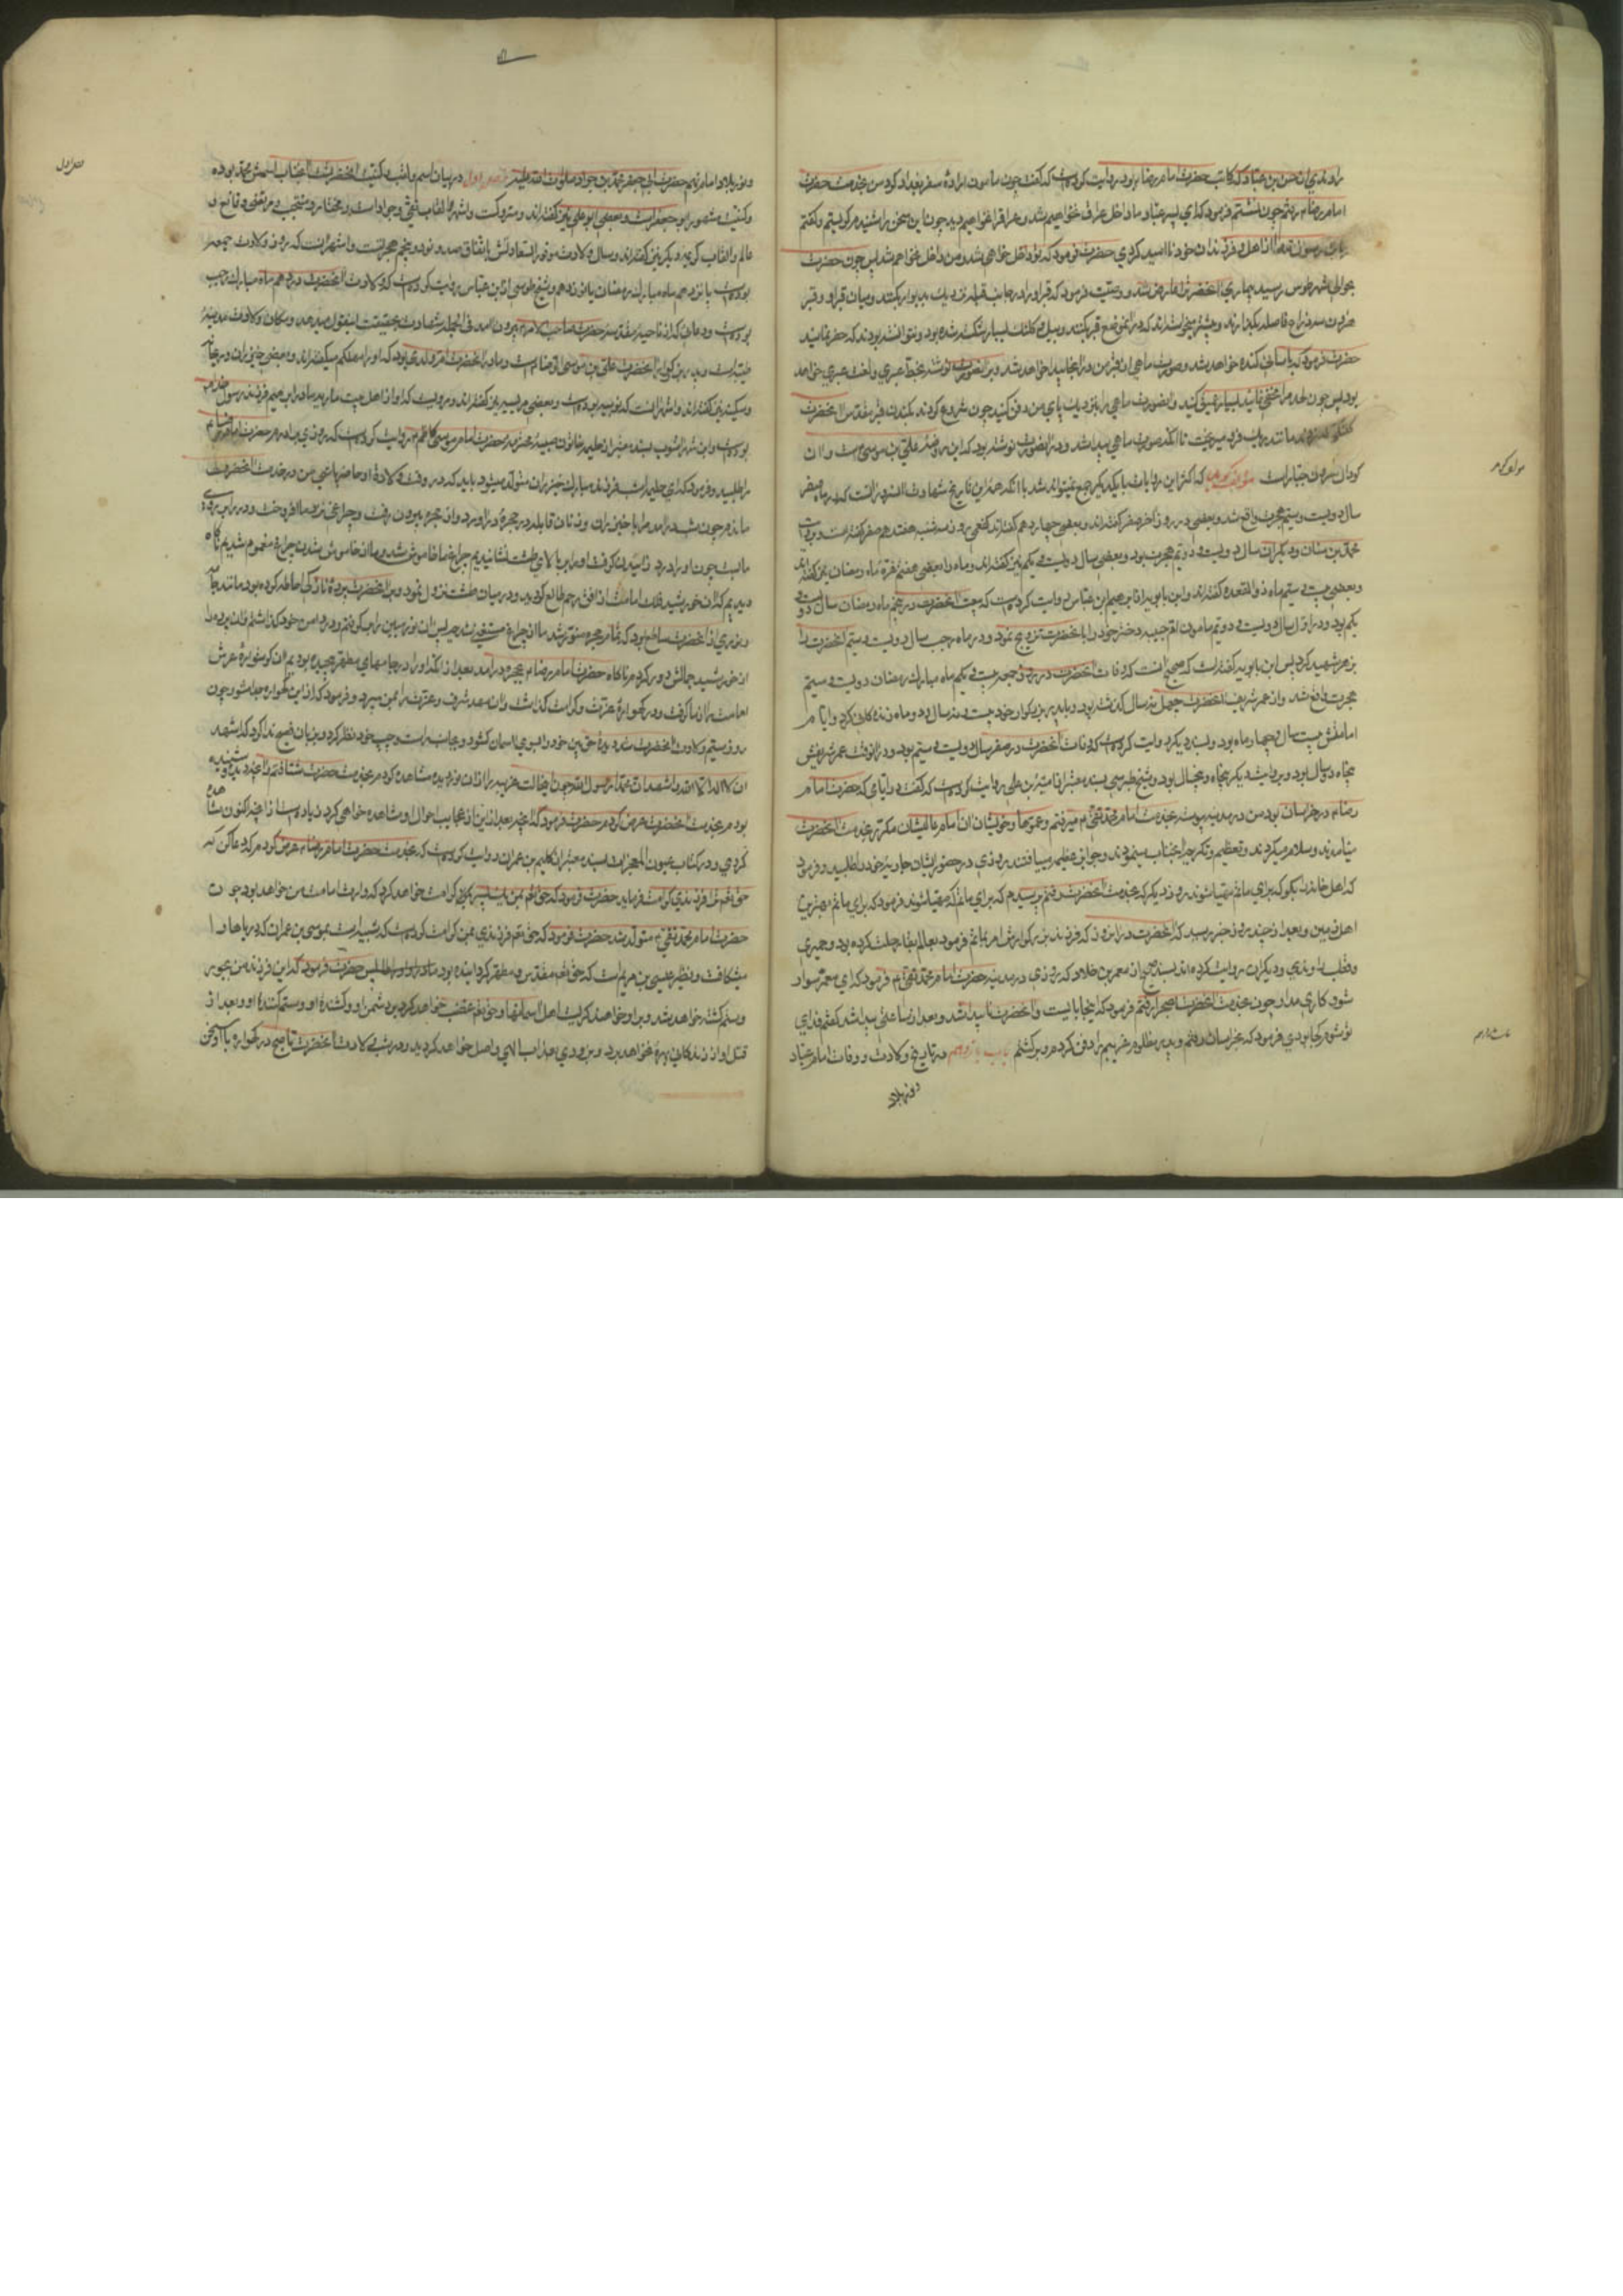 راوندی از حسن بن عباد که کاتب حضرت امام رضا بود روایت کرده است که گفت چون مامون اراده سفر بغداد کرد من بخدمت حضرت
امام رضا رفتم چون نشستم فرمود که ای پسر عباد ما داخل عراق نخواهیم شد و عراق را نخواهیم دید چون این سخن را شنیدم گریستم و گفتم
یابن رسول الله مرا از اهل و فرزندان خود ناامید کردی حضرت فرمود که تو داخل خواهی شد و من داخل نخواهم شد پس چون حضرت
بحوالی شهر طوس رسید بیماری آنحضرت را عارض شد و وصیت فرمود که قبر او را در جانب قبله نزدیک بدیوار بکنند و میان قبر او و قبر
هرون سه ذراع فاصله بگذارند و پیشتر میخواستند که در آن موضع قبر بکنند و بیل و کلنگ بسیار شکسته شده بود و نتوانسته بودند که حفر نمایند
حضرت فرمود که بآسانی کنده خواهد شد و صورت ماهی از قبر من در آنجا پیدا خواهد شد و بر آن صورت نوشته بخط عبری و لغت عبری خواهد
بود پس چون لحد مرا حفر نمایید بسیار عمیق کنید و آنصورت ماهی را نزدیک پای من دفن کنید چون شروع کردند بکندن قبر مقدس آنحضرت
مانند ریگ فرو میریخت تا آنکه صورت ماهی پیدا شد و در آنصورت نوشته بود که این روضه علی بن موسی است و آن
گودال هرون جبار است مؤلف گوید که اکثر این روایات با یکدیگر جمع نمیتواند شد با آنکه
سال دویست و سیم هجرت واقع شد و بعضی در روز آخر صفر گفته‌اند و بعضی چهاردهم گفته‌اند
محمد بن سنان و دیگران سال دویست و دویم هجرت بود و بعضی سال دویست و یکم نیز گفته‌اند و ماه را بعضی غره ماه رمضان نیز گفته‌اند
و بعضی بیست و سیم ماه ذوالقعده گفته‌اند و ابن بابویه از ابراهیم بن عباس روایت کرده است که بیعت آنحضرت در پنجم ماه رمضان سال دویست و
یکم بود و در اول سال دویست و دویم مامون ام حبیبه دختر خود را بآنحضرت تزویج نمود و در ماه رجب سال دویست و سیم آنحضرت را
بزهر شهید کرد پس ابن بابویه گفته است که صحیح آنست که وفات آنحضرت در روز جمعه بیست و یکم ماه مبارک رمضان دویست و سیم
هجرت واقع شد و از عمر شریف آنحضرت چهل و نه سال گذشته بود و با پدر بزرگوار خود بیست و نه سال و دو ماه زندگانی کرد و ایام
امامتش بیست سال و چهار ماه بود و بسند دیگر روایت کرده است که وفات آنحضرت در صفر سال دویست و سیم بود و در آنوقت عمر شریفش
پنجاه و دو سال بود و بروایت دیگر پنجاه و پنج سال بود و شیخ طبرسی بسند معتبر از امیة بن علی روایت کرده است که گفت در ایامی که حضرت امام
رضا در خراسان بود من در مدینه پیوسته بخدمت امام محمد تقی میرفتم و عموها و خویشان آن امام عالیشان مکرر بخدمت آنحضرت
میآمدند و سلام میکردند و تعظیم و تکریم آنجناب مینمودند روزی در حضور ایشان جاریه خود را طلبید و فرمود
که اهل خانه را بگو که برای ماتم مهیا شوند روز دیگر که بخدمت آنحضرت رفتم پرسیدم که برای ماتم که مهیا شوند فرمود که برای ماتم بهترین
اهل زمین و بعد از چند روز خبر رسید که آنحضرت در آن روز که فرزند بزرگوارش امر بماتم فرمود بعالم بقا رحلت کرده بود و حمیری
و قطب راوندی و دیگران روایت کرده‌اند بسند صحیح از معمر بن خلاد که روزی در مدینه حضرت امام محمد تقی فرمود که ای معمر سوار
شو کاری دارم چون بخدمت آنحضرت بصحرا رفتم فرمود که اینجا بایست و آنحضرت ناپیدا شد و بعد از ساعتی پیدا شد گفتم فدای
تو شوم کجا بودی فرمود که بخراسان رفتم و پدر مظلوم غریبم را دفن کردم و برگشتم باب یازدهم در تاریخ ولادت و وفات امام عباد
و نور بلاد امام نهم حضرت ابی جعفر محمد بن جواد صلوات الله علیه فصل اول در بیان اسم و لقب و کنیت آنحضرت است آنجناب اسمش محمد بوده
و کنیت مشهور ابو جعفر است و بعضی ابو علی نیز گفته‌اند و متروکست و اشهر القاب تقی و جواد است و مختار و منتجب و مرتضی و قانع و
عالم و القاب کریمه دیگر نیز گفته‌اند و سال ولادت موفور السعادتش باتفاق صد و نود و پنجم هجریست و اشهر آنست که روز ولادت جمعه
بوده است پانزدهم ماه مبارک رمضان یا نوزدهم و شیخ طوسی از ابن عیاش روایت کرده است که ولادت آنحضرت در دهم ماه مبارک رجب
بوده است و دعایی که از ناحیه مقدسه حضرت صاحب الامر بیرون آمد فی الجمله شهادت بحقیقت اینقول میدهد و مکان ولادت مدینه
طیبه است و پدر بزرگوار آنحضرت علی بن موسی الرضا است و مادر آنحضرت ام ولدی بود که او را سبیکه میگفته‌اند و بعضی خیزران و ریحانه
و سکینه نیز گفته‌اند و اشهر آنست که نوبیه بوده است و بعضی مریسیه نیز گفته‌اند و مرویست که او از اهل بیت ماریه مادر ابراهیم فرزند رسول خدا
بوده است و ابن شهرآشوب بسند معتبر از حکیمه خاتون صبیه محترمه حضرت امام موسی کاظم روایت کرده است که روزی برادرم حضرت امام رضا
مرا طلبید و فرمود که ای حکیمه امشب فرزند مبارک خیزران متولد میشود باید که در وقت ولادت او حاضر باشی من در خدمت آنحضرت
ماندم چون شب درآمد مرا با خیزران و زنان قابله در حجره درآورد و از حجره بیرون رفت و چراغی نزد ما افروخت و در را بر روی
ما بست چون او را درد زائیدن گرفت و او را بر بالای طشت نشانیدیم چراغ ما خاموش شد و ما از خاموش شدن چراغ مغموم شدیم ناگاه
دیدیم که آن خورشید فلک امامت از افق رحم طالع گردید و در میان طشت نزول نمود و بر آنحضرت پرده نازکی احاطه کرده بود مانند جامه
و نوری از آنحضرت ساطع بود که تمام حجره منور شد و ما از چراغ مستغنی شدیم پس آن نور مبین را برگرفتم و در دامن خود گذاشتم و آن پرده را
از خورشید جمالش دور کردم ناگاه حضرت امام رضا بحجره درآمد بعد از آنکه او را در جامهای مطهر پیچیده بودیم آن گوشواره عرش
امامت را از ما گرفت و در گهواره عزت و کرامت گذاشت و آن مهد شرف و عزت را بمن سپرد و فرمود که از این گهواره جدا مشو چون
روز سیم ولادت آنحضرت شد دیده حق بین خود را بسوی آسمان گشود و بجانب راست و چپ خود نظر کرد و بزبان فصیح ندا کرد که اشهد
ان لا اله الا الله و اشهد ان محمدا رسول الله چون اینحالت غریبه را از آن نور دیده مشاهده کردم بخدمت حضرت شتافتم و آنچه دیده و شنیده
بودم بخدمت آنحضرت عرض کردم حضرت فرمود که آنچه بعد از این از عجایب احوال او مشاهده خواهی کرد زیاده است از آنچه اکنون مشاهده
کردی و در کتاب عیون المعجزات بسند معتبر از کلیم بن عمران روایت کرده است که بخدمت حضرت امام رضا عرض کردم که دعا کن که
حق تعالی ترا فرزندی کرامت فرماید حضرت فرمود که حق تعالی بمن یک پسر کرامت خواهد کرد که وارث امامت من خواهد بود چون
حضرت امام محمد تقی متولد شد حضرت فرمود که حق تعالی فرزندی بمن کرامت کرده است که شبیه است بموسی بن عمران که دریاها را
میشکافت و نظیر عیسی بن مریم است که حق تعالی مقدس و مطهر گردانیده بود مادر او را پس حضرت فرمود که این فرزند من بجور
و ستم کشته خواهد شد و بر او خواهند گریست اهل آسمانها و حق تعالی غضب خواهد کرد بر دشمن او و کشنده او و ستم کننده او و بعد از
قتل او از زندگانی بهره نخواهد برد و بزودی بعذاب الهی واصل خواهد گردید و در شب ولادت آنحضرت تا صبح در گهواره با او سخن
و نور بلاد